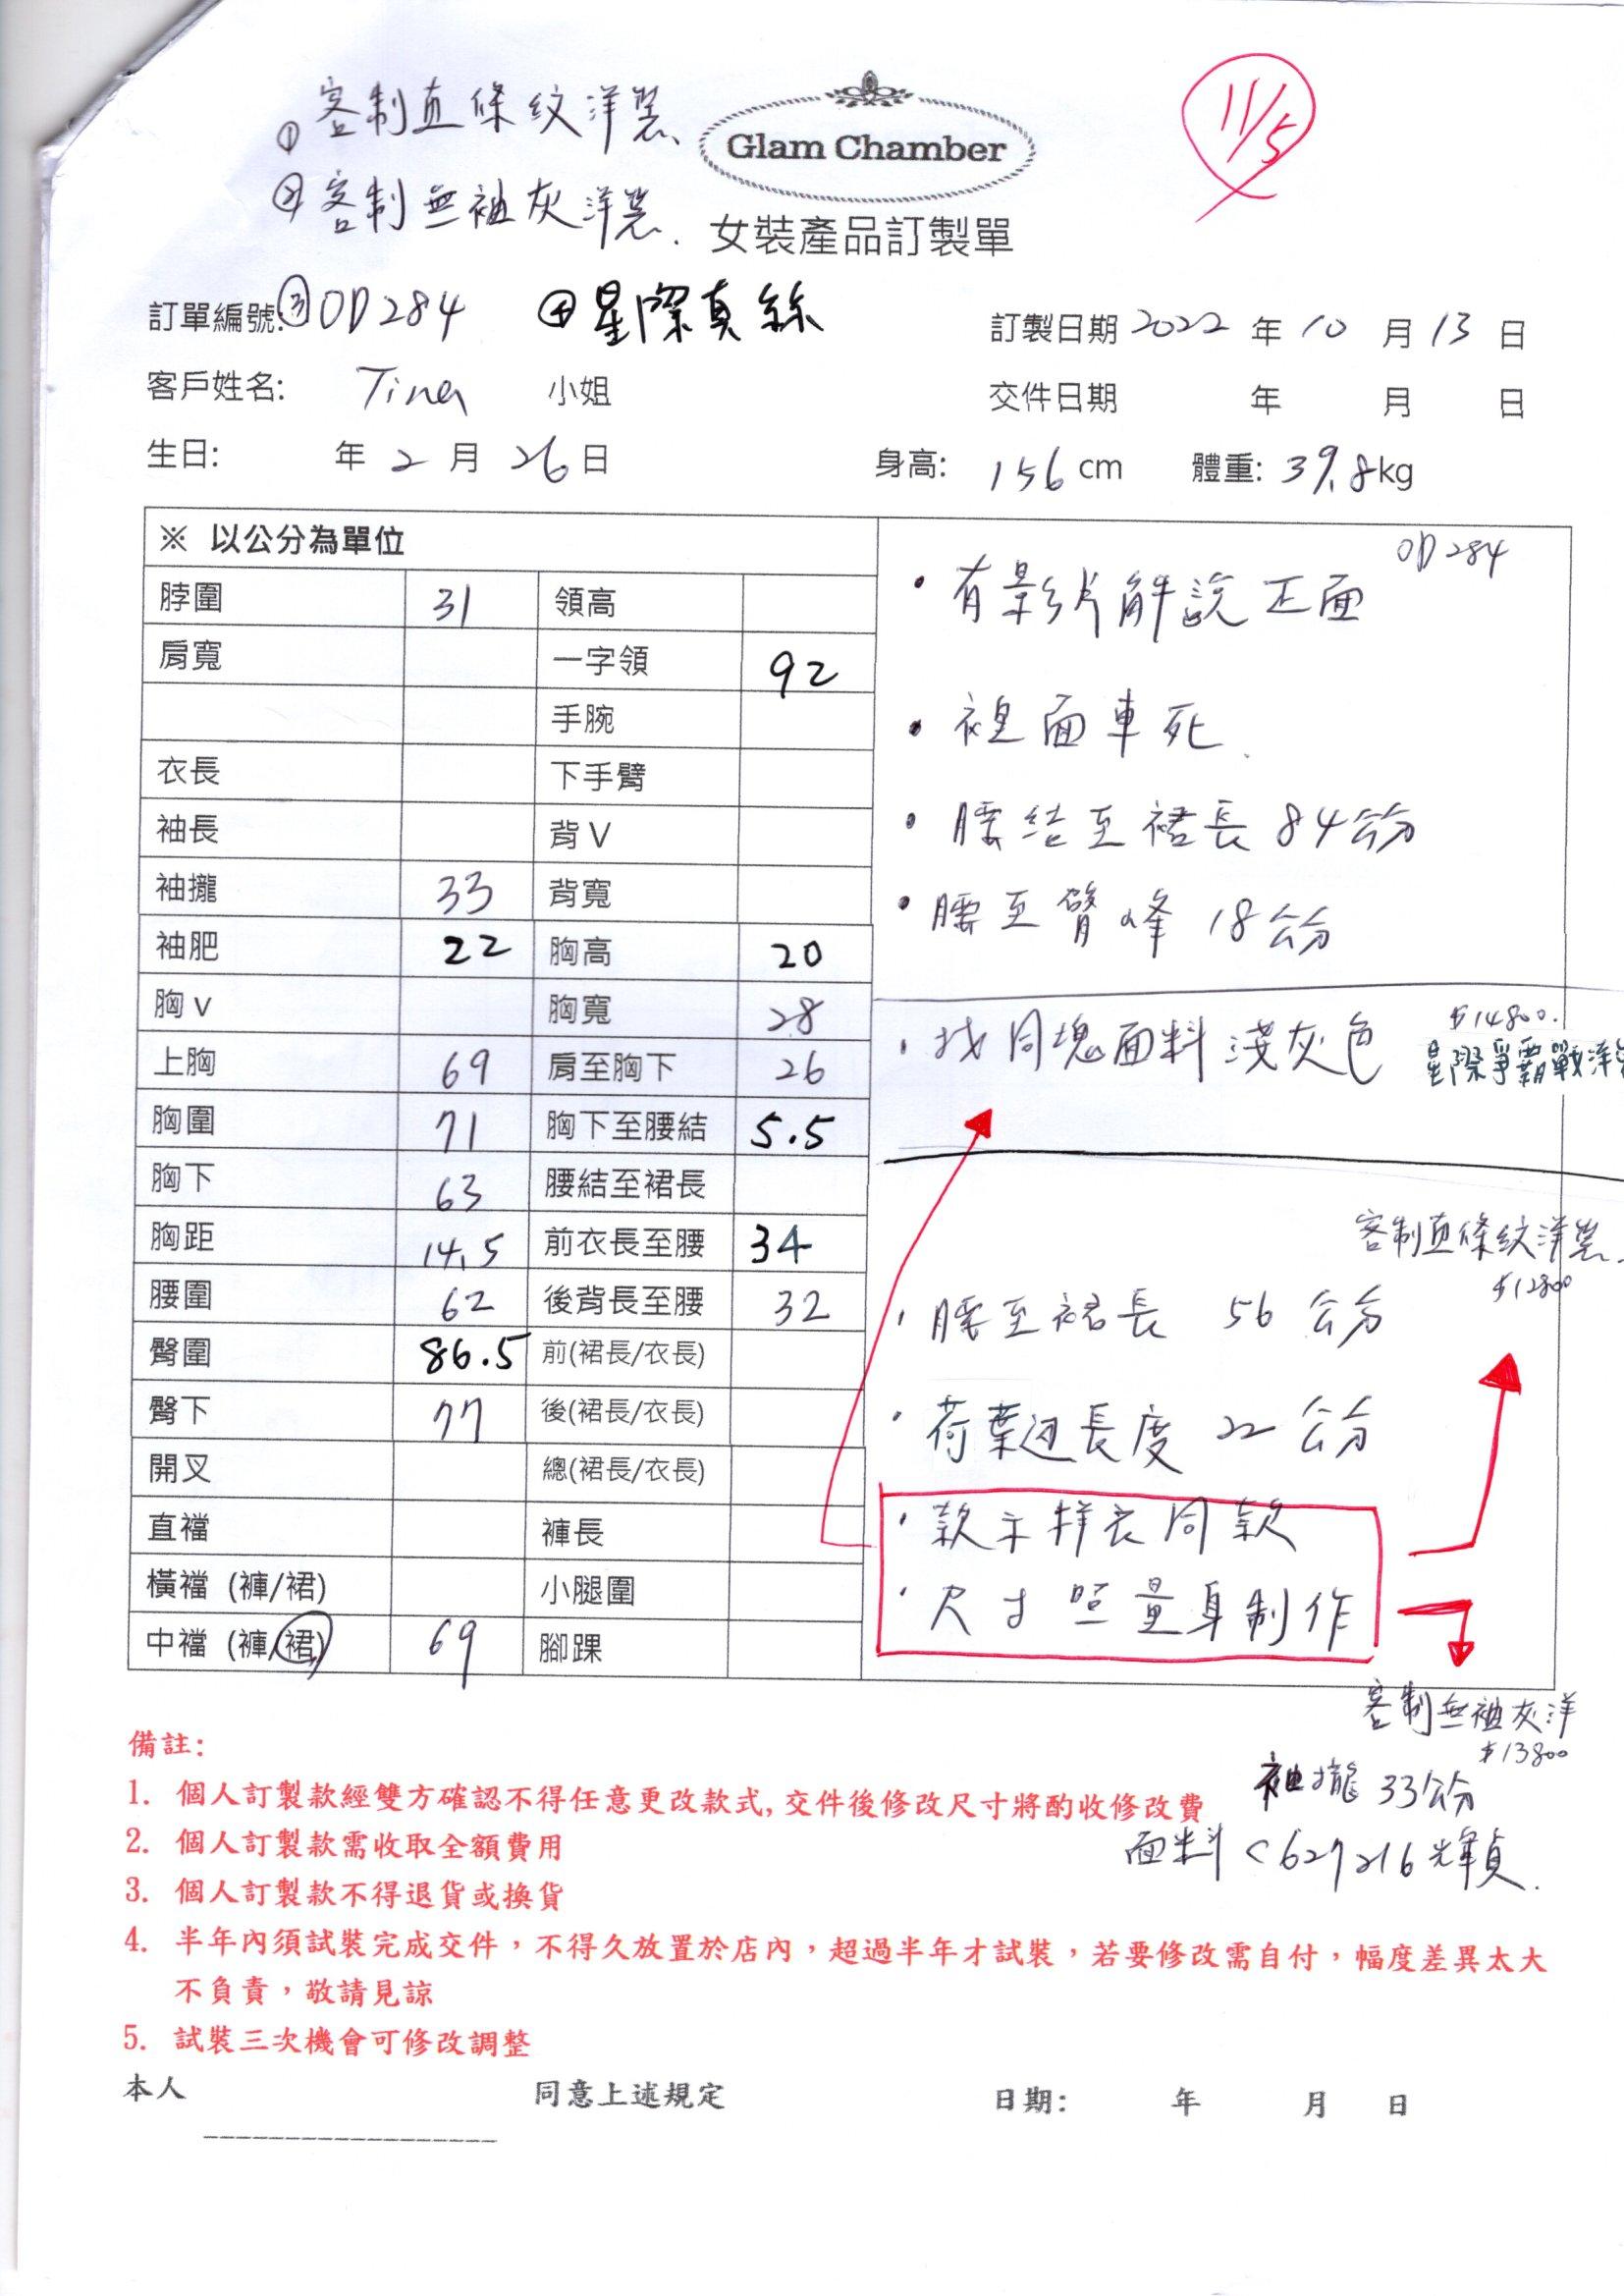 ①客制直條紋洋裝、
Glam Chamber
11/5
②客制無袖灰洋裝.
女裝產品訂製單
訂單編號:③OD284 ④星際真絲
訂製日期 2022 年 10 月 13 日
客戶姓名: Tina 小姐
交件日期 年 月 日
生日: 年 2 月 26 日
身高: 156 cm 體重: 39.8 kg
※ 以公分為單位
脖圍 31 領高
肩寬 一字領 92
手腕
衣長 下手臂
袖長 背V
袖攏 33 背寬
袖肥 22 胸高 20
胸v 胸寬 28
上胸 69 肩至胸下 26
胸圍 71 胸下至腰結 5.5
胸下 63 腰結至裙長
胸距 14.5 前衣長至腰 34
腰圍 62 後背長至腰 32
臀圍 86.5 前(裙長/衣長)
臀下 77 後(裙長/衣長)
開叉 總(裙長/衣長)
直襠 褲長
橫襠 (褲/裙) 小腿圍
中襠 (褲/裙) 69 腳踝
OD284
·有影片解說正面
·裡面車死.
·腰結至裙長84公分
·腰至臀峰 18公分
$14800.
·找同塊面料淺灰色
星際爭霸戰洋裝
客制直條紋洋裝、
$12800
·腰至裙長 56 公分
·荷葉边長度 22 公分
·款示样衣同款
·尺寸照量身制作
客制無袖灰洋
$13800
袖攏 33公分
面料 C627216 輝貞.
備註:
1. 個人訂製款經雙方確認不得任意更改款式, 交件後修改尺寸將酌收修改費
2. 個人訂製款需收取全額費用
3. 個人訂製款不得退貨或換貨
4. 半年內須試裝完成交件，不得久放置於店內，超過半年才試裝，若要修改需自付，幅度差異太大
不負責，敬請見諒
5. 試裝三次機會可修改調整
本人 同意上述規定 日期: 年 月 日